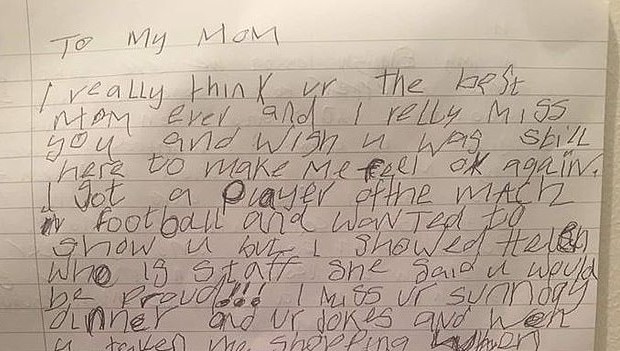 To My MOM
I really think ur the best
MOM ever and I relly Miss
you and wish u was still
here to make me feel ok again.
I got a player ofthe Mach
in football and wanted to
show u but I showed Helen
who is staff she said u would
be proud!!! I Miss ur sunndgy
dinner and ur Jokes and weh
u taken me shopping